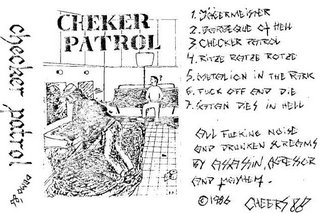 checker patrol
demo 86
CHEKER
PATROL
1. JÄGERMEISTER
2. BARBEQUE OF HELL
3 CHECKER PATROL
4. RITZE RATZE ROTZE
5. METALION IN THE PARK
6. FUCK OFF AND DIE
7. SATAN DIES IN HELL
ALL FUCKING NOISE
AND DRUNKEN SCREAMS
BY ASSASSIN, AGRESSOR
AND MAYHEM.
© 1986 CHEERS 88